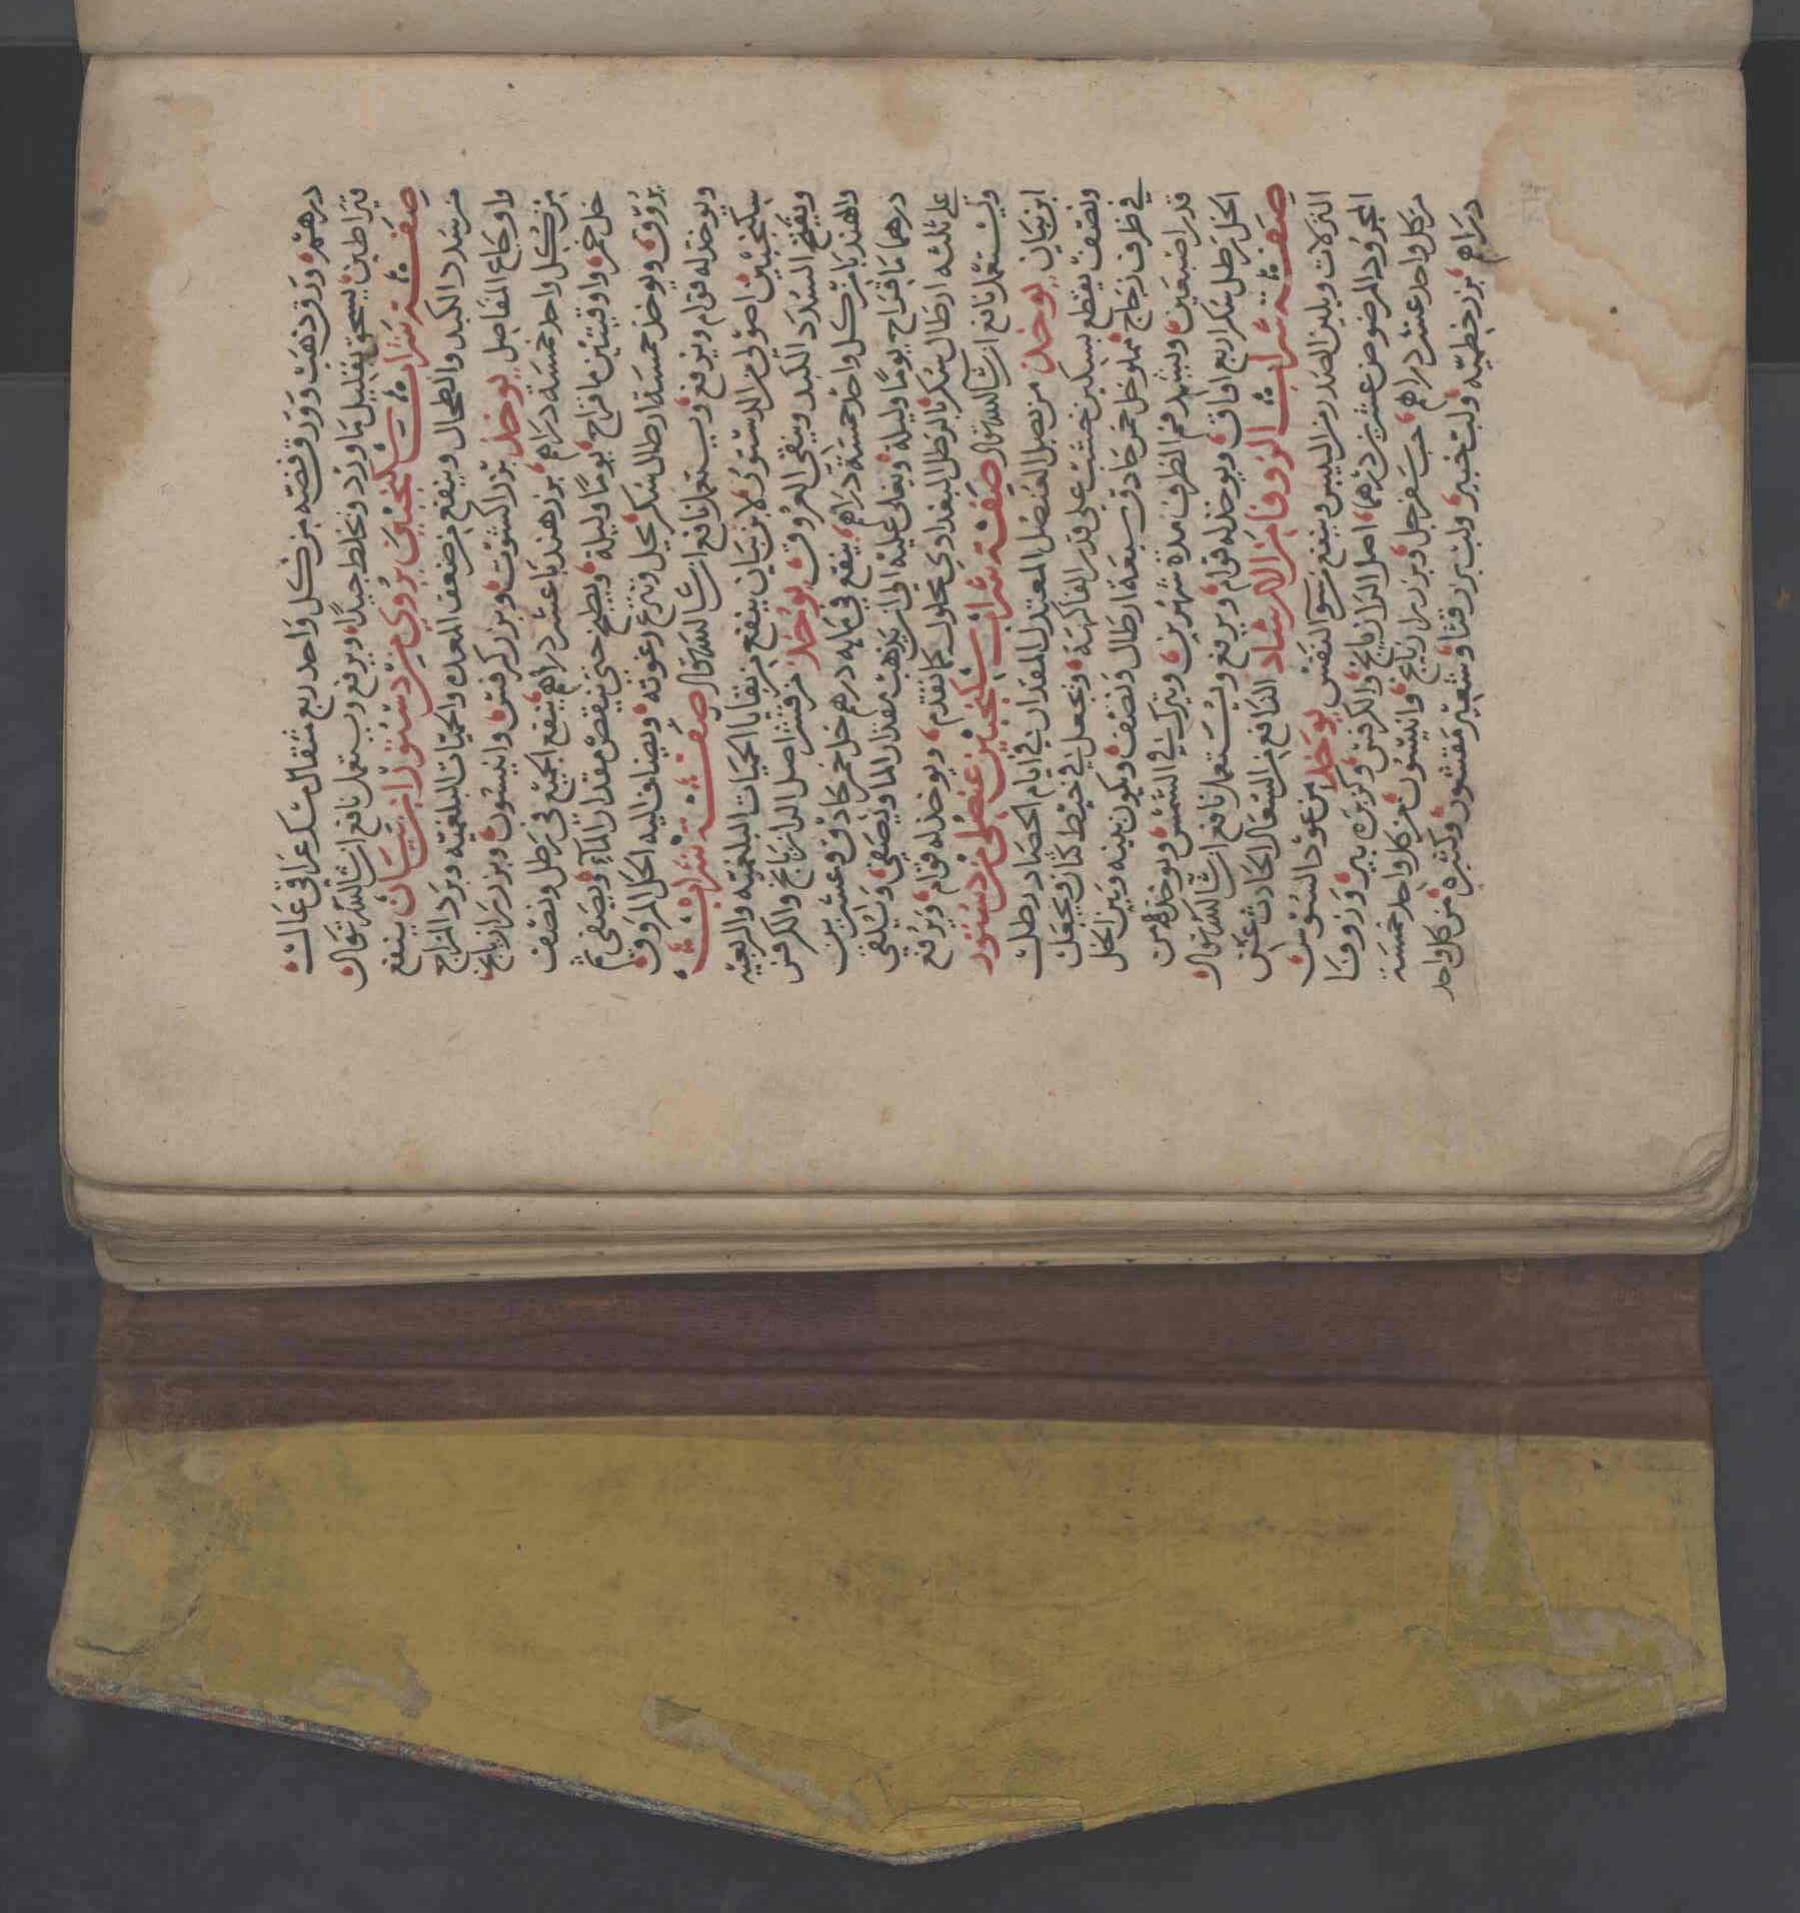 درهم، ورق ذهب وورق فضه من كل واحد ربع مثقال سك عراقى غال
قيراطين يسحق بقليل ماورد ويخلط جيدا، ويرفع ويستعمل نافع ان شا الله تعالى
صفة شراب سكنجبين بزوري من دستور ابن بيان ينفع
من سدد الكبد والطحال وينفع من ضعف المعده والحميات البلغميه وبرد المزاج
واوجاع المفاصل يوخذ بزر الكشوت وبزر كرفس وانيسون وبزر رازيانج
من كل واحد خمسة دراهم، بزر هندبا عشر دراهم ينقع الجميع فى رطل ونصف
خل خمر، واوقيتين ما قراح، يوما وليلة ويطبخ حتى ينقص مقدار الماء ويصفى ثم
يروق ويوخذ خمسة ارطال سكر يحل وتنزع رغوته ويضاف اليه الخل المروق
ويوخذ له قوام ويرفع ويستعمل نافع ان شا الله تعالى صفة شراب
سكنجبين اصولى من الدستور لابن بيان ينفع من بقايا الحميات البلغميه والربعيه
ويفتح السدد الكبد وينقى العروق يوخذ من قشر اصل الرازيانج والكرفس
والهندبا من كل واحد خمسة دراهم، ينقع في مايه درهم خل خمر حاذق وعشرين
درهما ما قراح يوما وليلة ويغلى عليه الى ان يذهب مقدار الما ويصفى، ويلقى
على ثلثه ارطال سكر بالرطل البغدادي محلول كما تقدم، ويوخذ له قوام، ويرفع
ويستعمل نافع ان شا الله تعالى صفة شراب سكنجبين عنصلى من دستور
ابن بيان يوخذ من بصل العنصل المعتدل المقدار في ايام الحصاد رطل
ونصف يقطع بسكين خشب على قدر الفاكهة وتجعل في خيط كتان ويجعل
في ظرف زجاج مملو خل خمر حاذق سبعة ارطال ونصف ويكون بينه وبين الخل
قدر اصبعين ويشد فم الظرف مدة شهرين ويترك في الشمس ويوخذ من
الخل رطل سكر اربع اواق ويوخذ له قوام ويرفع ويستعمل نافع ان شا الله تعالى
صفة شراب الزوفا من الارشاد النافع من السعال الحادث عن
النزلات ويلين الصدر من اليبس وينفع من سو النفس يوخذ من عود السوس
المجرود المرضوض عشرين درهما، اصل الرازيانج والكرفس وكزبرة بير وزوفا
من كل واحد عشر دراهم، حب سفرجل وبزر رازيانج وانيسون من كل واحد خمسة
دراهم، بزر خطميه ولب خبيز ولب بزر قثا وشعير مقشور وكثيره من كل واحد